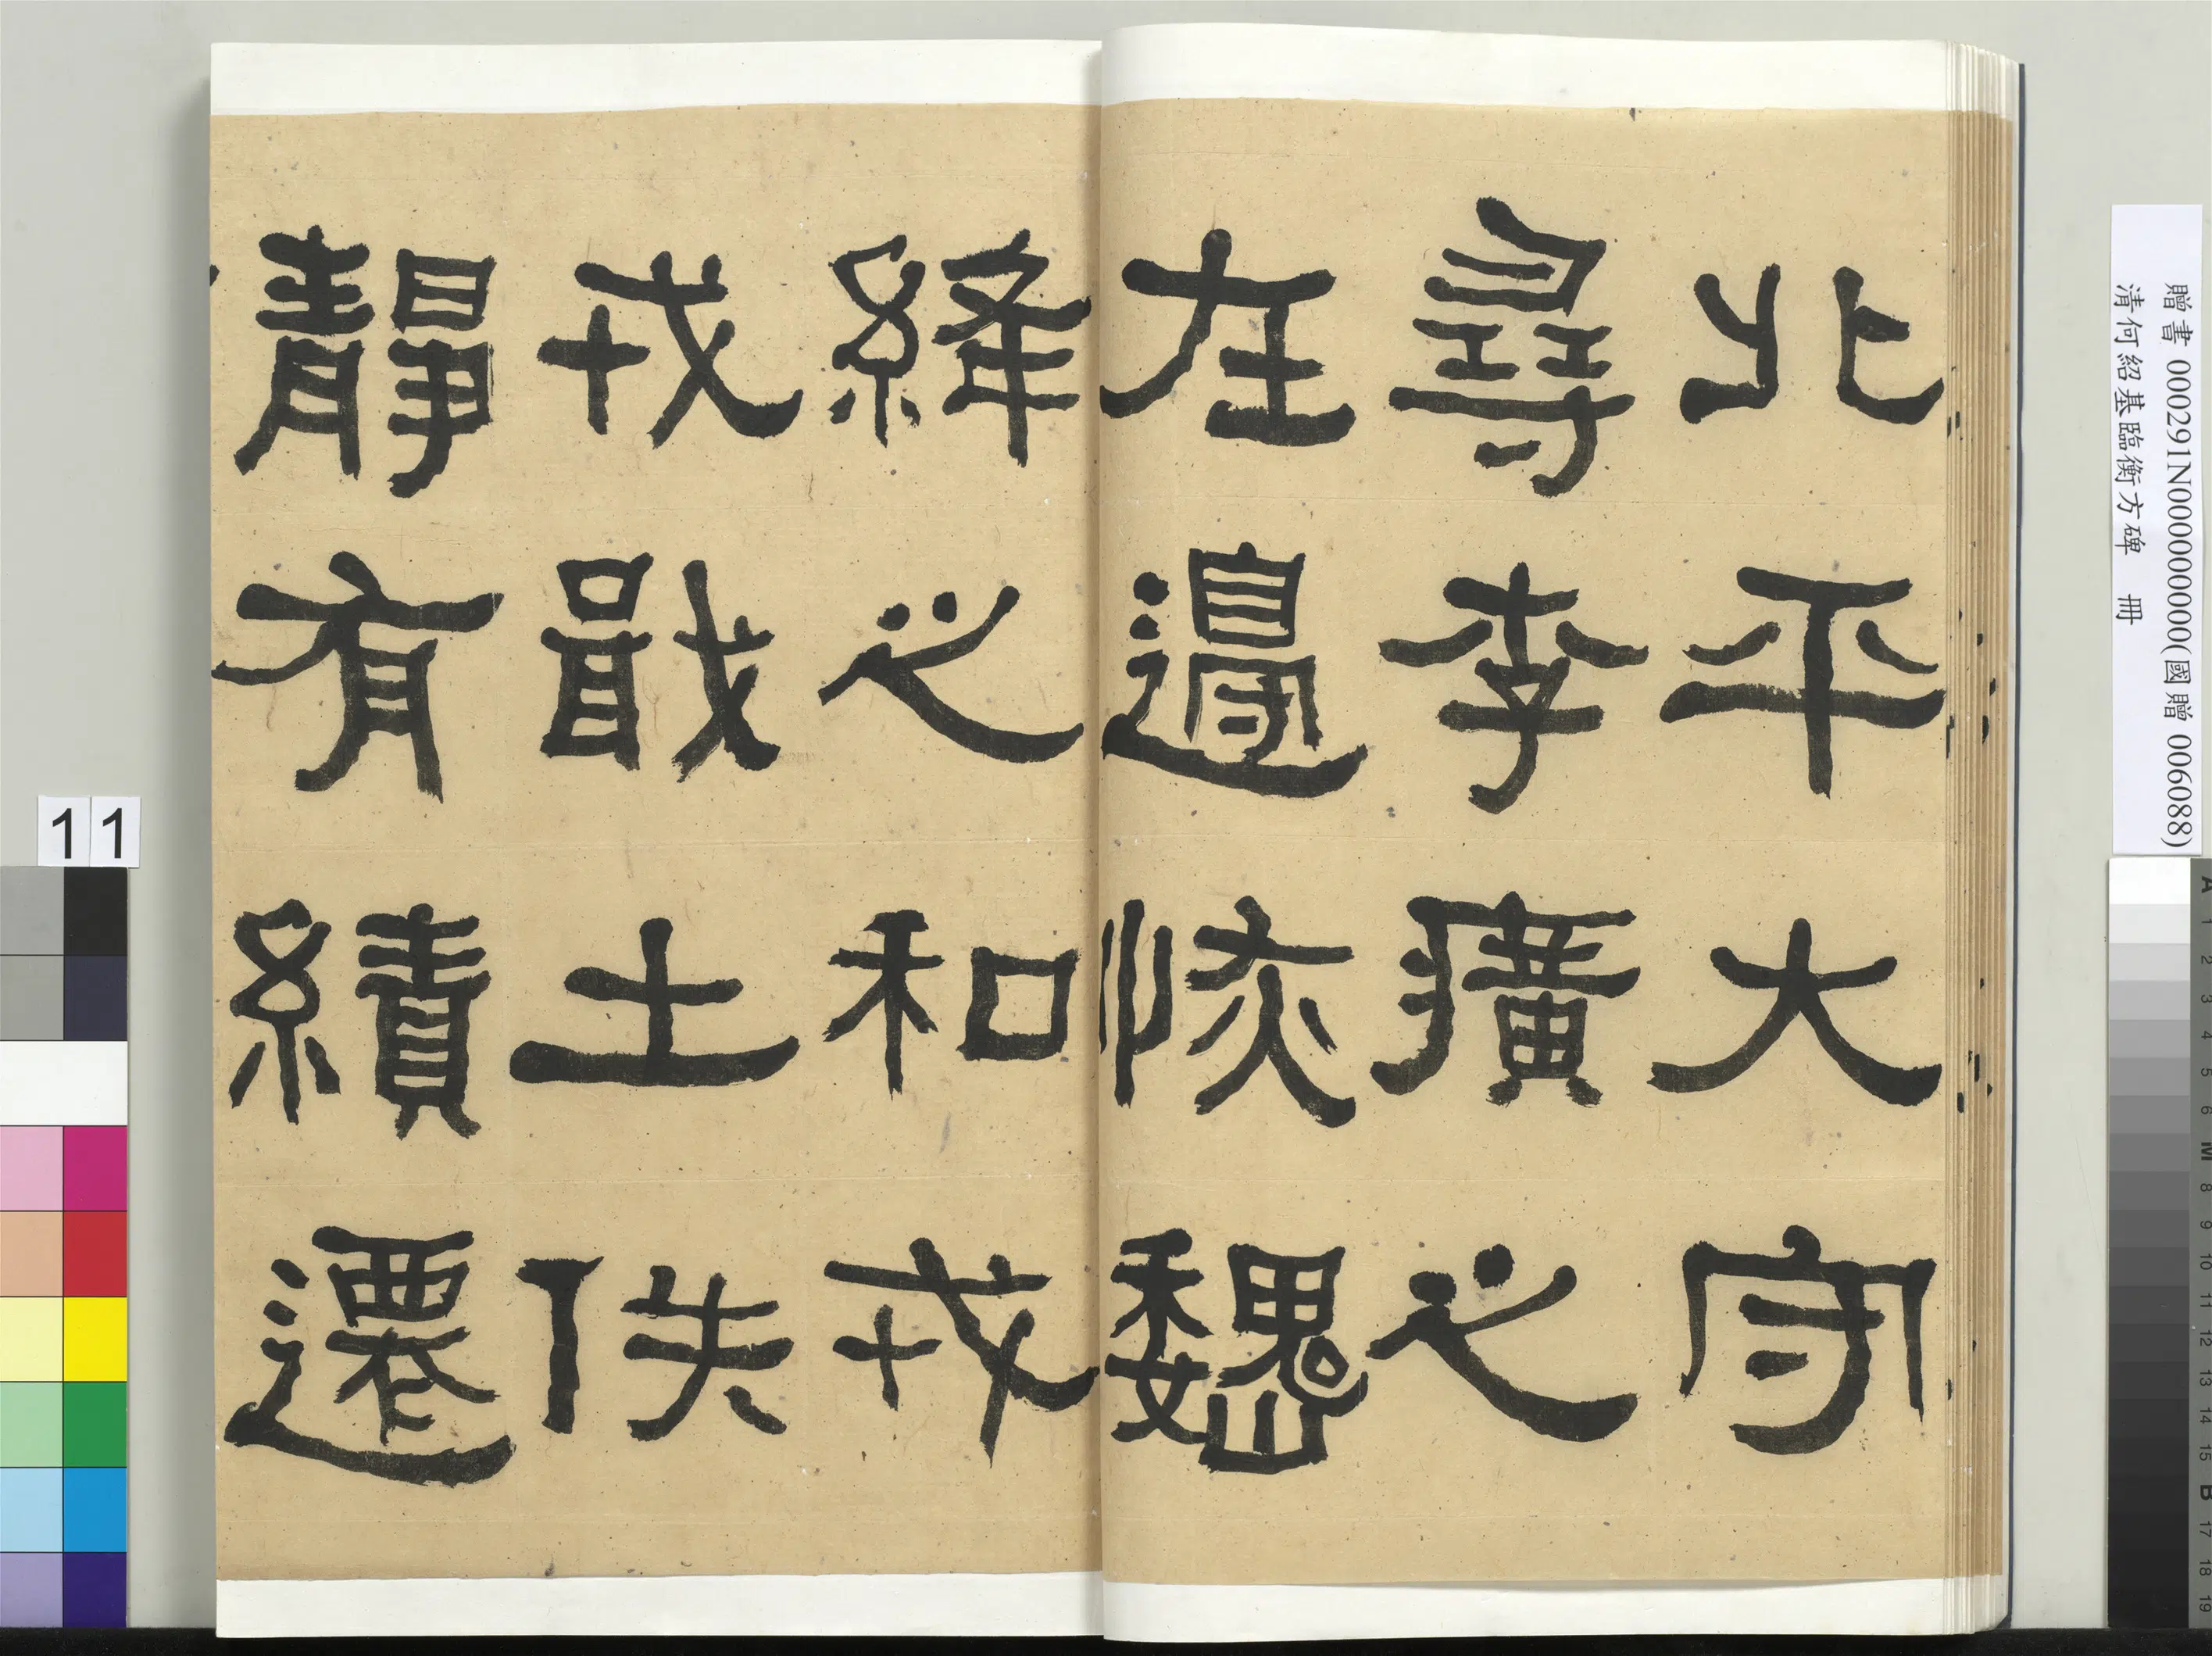 北平大守
尋李癀之
在邊恢巍
絳之和戎
戎戢土佚
靜有績遷
贈書 000291N000000000(國贈 006088)
清何紹基臨衡方碑 冊
11
A 1 2 3 4 5 6 M 8 9 10 11 12 13 14 15 B 17 18 19